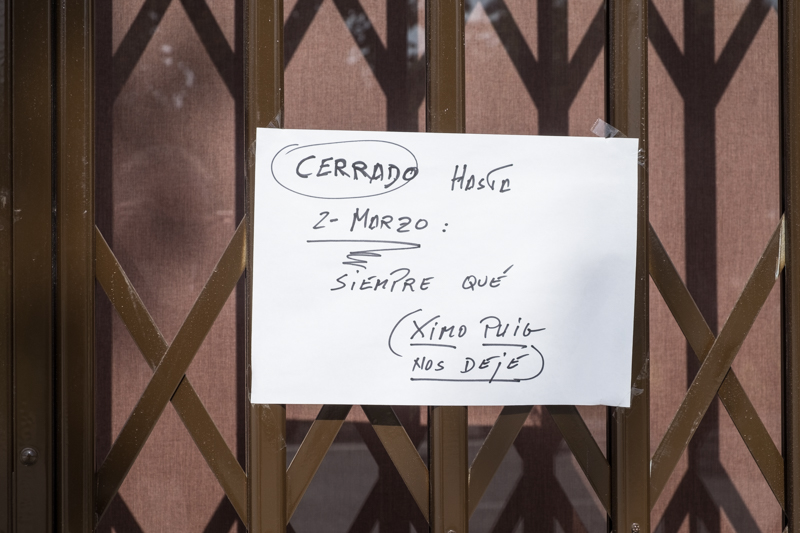 CERRADO HASTA
2- MARZO :
SIEMPRE QUÉ
(XIMO PUIG
NOS DEJE)